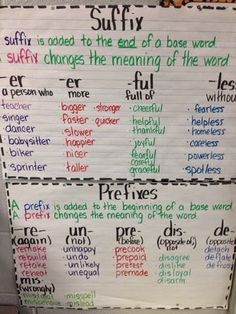 Suffix
A suffix is added to the end of a base word
A suffix changes the meaning of the word
-er -er -ful -less
a person who more full of without
teacher bigger stronger cheerful fearless
singer faster quicker helpful helpless
dancer slower thankful homeless
babysitter happier joyful careless
biker nicer fearful powerless
sprinter taller graceful spotless
Prefixes
A prefix is added to the beginning of a base word
A prefix changes the meaning of the word.
-re- -un- -pre- -dis- -de-
(again) (not) (before) (opposite of) (opposite
not
remake unhappy precook disagree detach
rebuild undo prepaid dislike deflate
retake unlikely pretest disloyal defrost
reheat unequal premade disarm
mis
(wrongly)
misspell
mislead